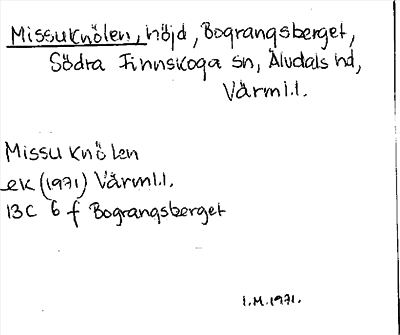 Missuknölen, höjd, Bograngsberget,
Södra Finnskoga sn, Älvdals hd,
Värml.l.
Missuknölen
ek (1971) Värml.l.
13C 6 f Bograngsberget
I.M.1971.